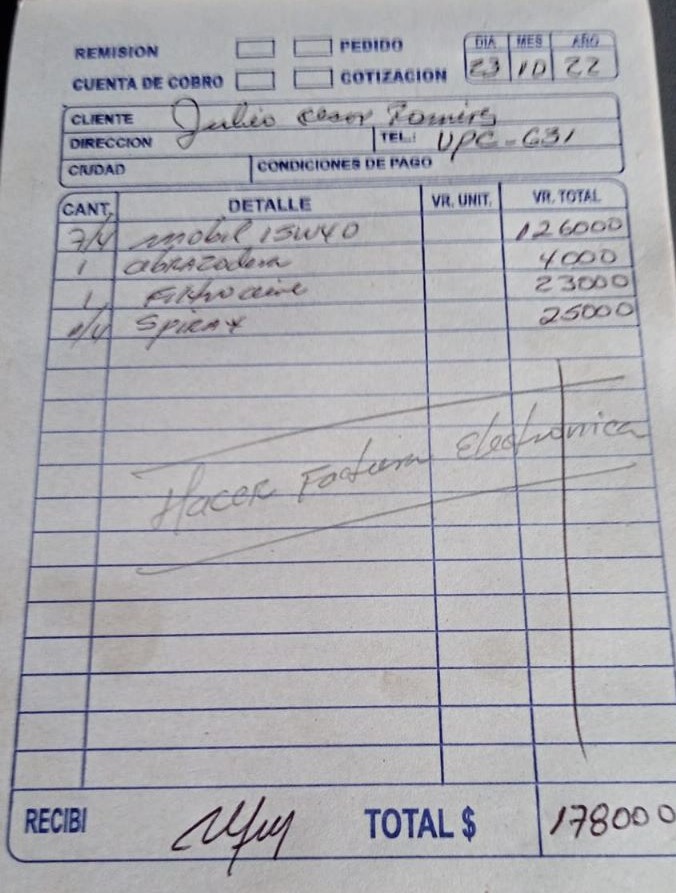 REMISION PEDIDO DIA MES AÑO
CUENTA DE COBRO COTIZACION 23 10 22
CLIENTE Julio Cesar Ramirez
DIRECCION TEL.: UPC-631
CIUDAD CONDICIONES DE PAGO
CANT. DETALLE VR. UNIT. VR. TOTAL
7/4 mobil 15W40 126000
1 abrazadera 4000
1 Filtro aceite 23000
/4 SPIRAX 25000
Hacer Factura Electronica
RECIBI TOTAL $ 178000